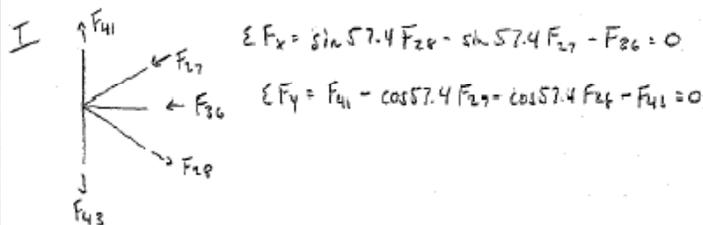 I
F41
F27
F36
F28
F43
ΣFx = sin57.4 F28 - sin 57.4 F27 - F36 = 0
ΣFy = F41 - cos57.4 F27 - cos57.4 F28 - F43 = 0